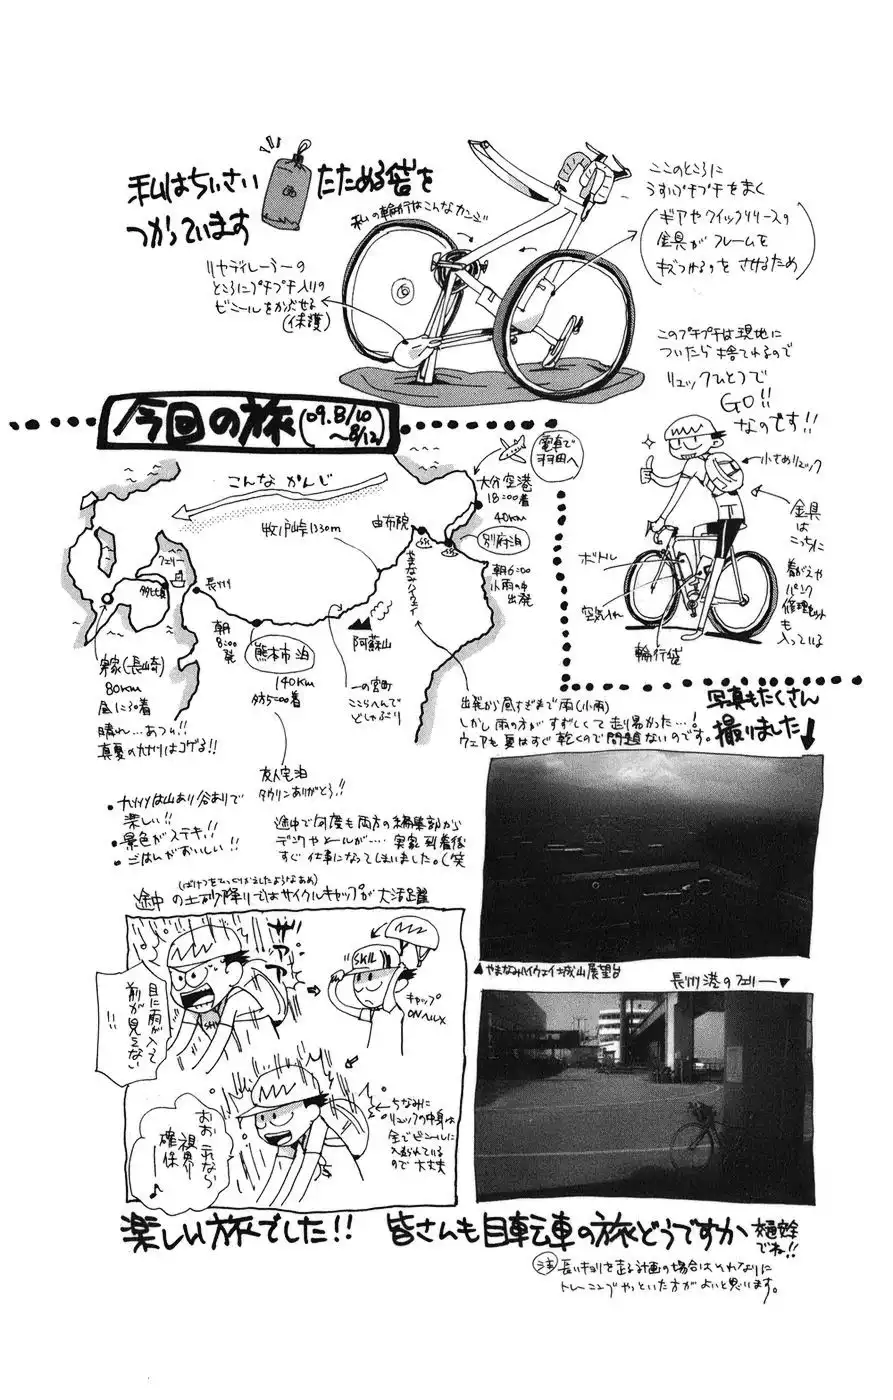 私はちいさい たためる袋を
つかっています
私の輪行はこんなカンジ
リヤディレーラーの
ところにプチプチ入りの
ビニールをかぶせる
(保護)
ここのところに
うすいプチプチをまく
(ギアやクイックリリースの
金具がフレームを
キズつけるのを させるため)
このプチプチは現地に
ついたら捨てれるので
リュックひとつで
GO!!
なのです!!
小さめリュック
金具
は
こっちに
着がえや
パンク
修理セット
も
入っている
ボトル
空気入れ
輪行袋
今回の旅(09.8/10
〜8/12)
こんな かんじ
電車で
羽田へ
大分空港
18:00着
40km
別府泊
朝6:00
小雨の中
出発
由布院
やまなみハイウェイ
牧ノ戸峠1330m
阿蘇山
一の宮町
ここらへんで
どしゃぶり
熊本市 泊
140km
夕方5:00着
友人宅泊
タウリンありがとう!!
朝
8:00
発
長州
フェリー
多比良
実家(長崎)
80km
昼12:30着
晴れ… あつい!!
真夏の九州はコゲる!!
出発から昼すぎまで雨(小雨)
しかし雨の方がすずしくて走り易かった…!
ウェアも夏はすぐ乾くので問題ないのです。
・九州は山あり谷ありで
楽しい!!
・景色がステキ!!
・ごはんがおいしい!!
途中で何度も両方の編集部から
デンワやメールが…. 実家到着後
すぐ仕事になってしまいました。(笑
写真もたくさん
撮りました
(ばけつをひっくりかえしたようなあめ)
途中 の土砂降りではサイクルキャップが大活躍
ザアアア
目に雨が入って
前が見えない
!!
SKIL
キャップ
ON ヘルメ
おお これなら
視界
確保
♪
ちなみに
リュックの中身は
全てビニールに
入れられている
ので大丈夫
▲やまなみハイウェイ城山展望台
長州港のフェリー▼
楽しい旅でした!! 皆さんも自転車の旅どうですか 交通安全
でね!!
注 長いキョリを走る計画の場合はそれなりに
トレーニングやっといた方がよいと思います。